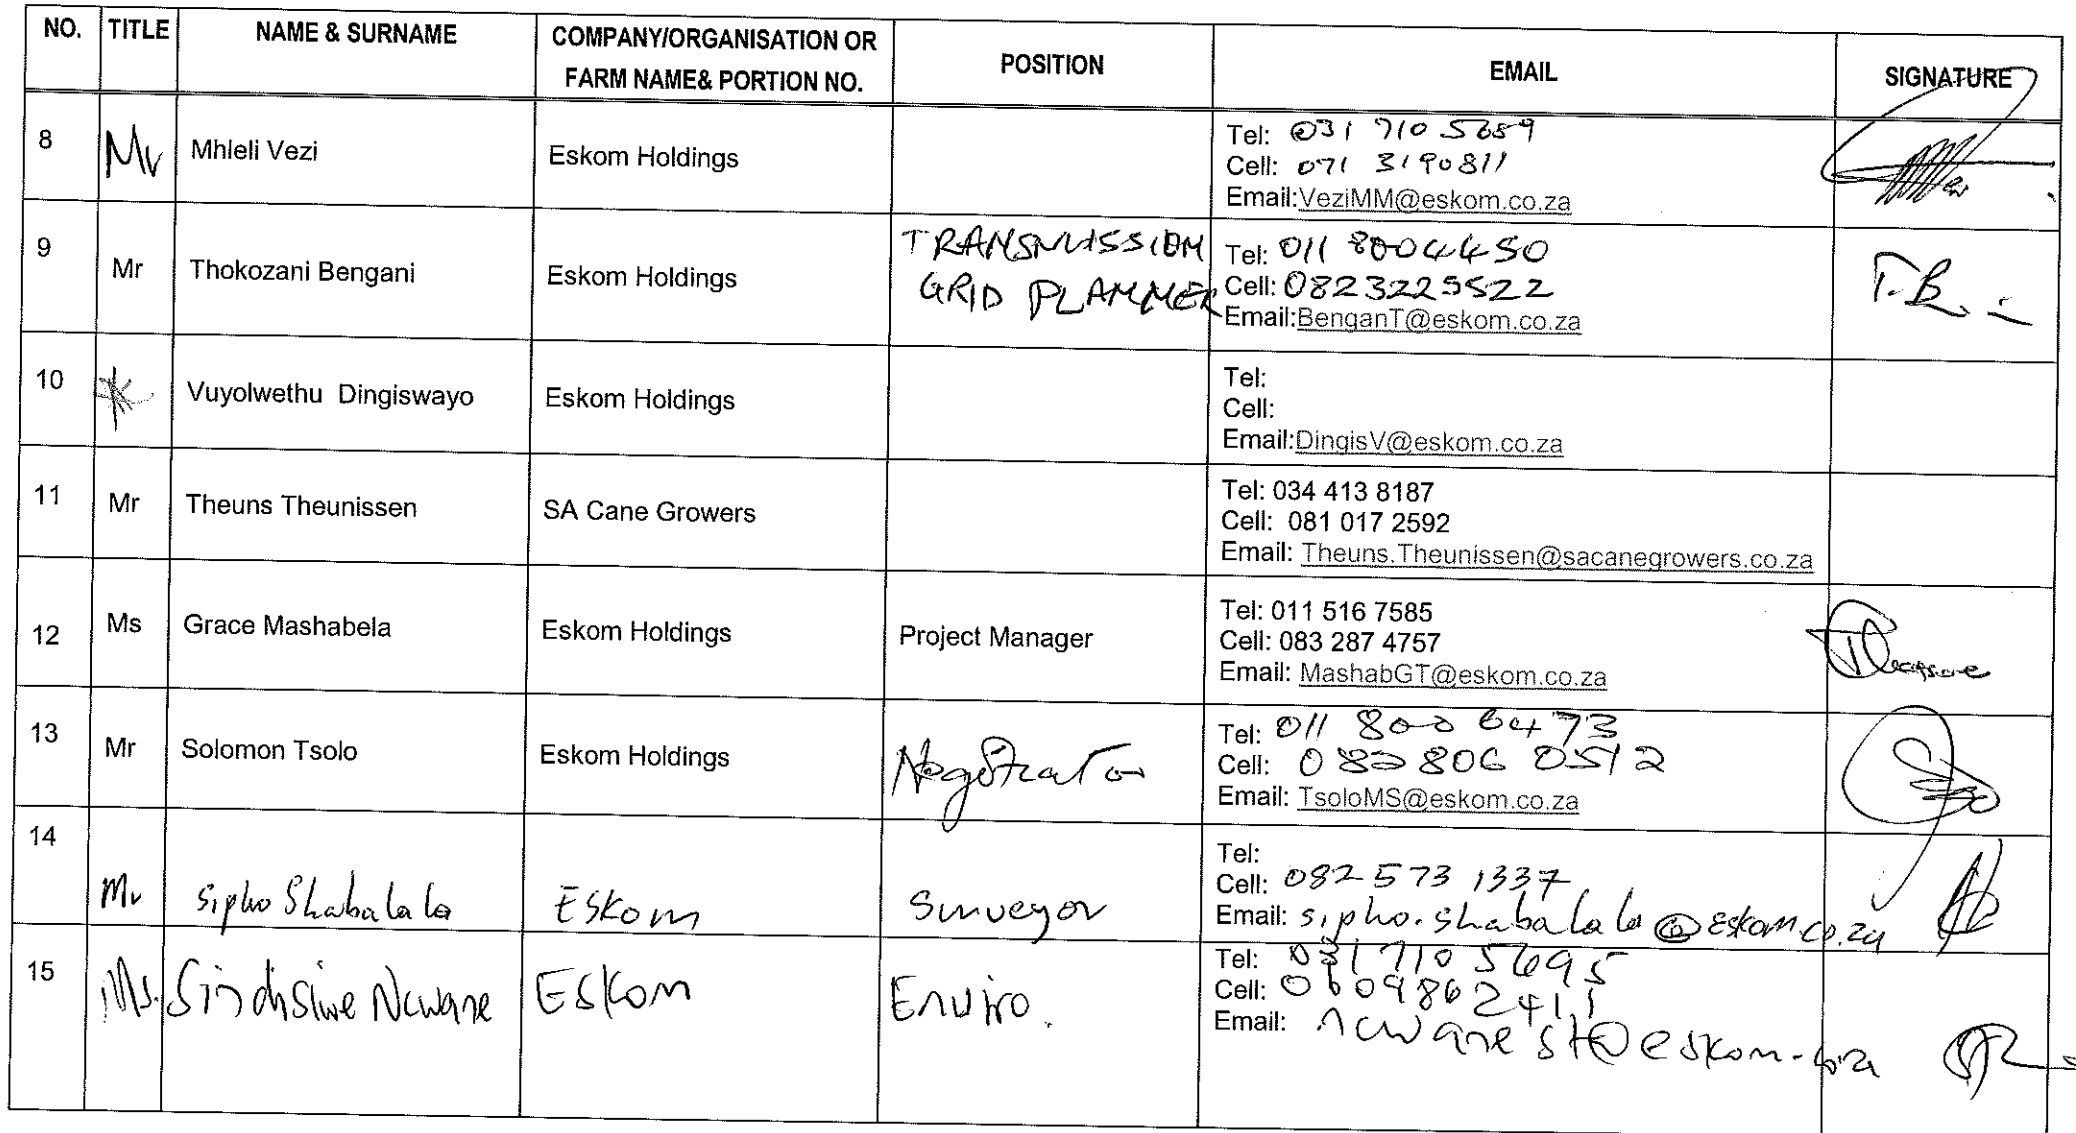 NO. TITLE NAME & SURNAME COMPANY/ORGANISATION OR FARM NAME& PORTION NO. POSITION EMAIL SIGNATURE
8 Mr Mhleli Vezi Eskom Holdings
Tel: 031 710 5689
Cell: 071 3190811
Email:VeziMM@eskom.co.za
9 Mr Thokozani Bengani Eskom Holdings
TRANSMISSION
GRID PLANNER
Tel: 011 8004450
Cell: 0823225522
Email:BenganT@eskom.co.za
T.B.
10 Vuyolwethu Dingiswayo Eskom Holdings
Tel:
Cell:
Email:DingisV@eskom.co.za
11 Mr Theuns Theunissen SA Cane Growers
Tel: 034 413 8187
Cell: 081 017 2592
Email: Theuns.Theunissen@sacanegrowers.co.za
12 Ms Grace Mashabela Eskom Holdings Project Manager
Tel: 011 516 7585
Cell: 083 287 4757
Email: MashabGT@eskom.co.za
13 Mr Solomon Tsolo Eskom Holdings Negotiator
Tel: 011 800 6473
Cell: 082 806 0512
Email: TsoloMS@eskom.co.za
14 Mr Sipho Shabalala Eskom Surveyor
Tel:
Cell: 082 573 1337
Email: sipho.shabalala@eskom.co.za
15 Ms. Sindisiwe Ncwane Eskom Enviro.
Tel: 031 710 5695
Cell: 0609862411
Email: ncwanest@eskom.co.za